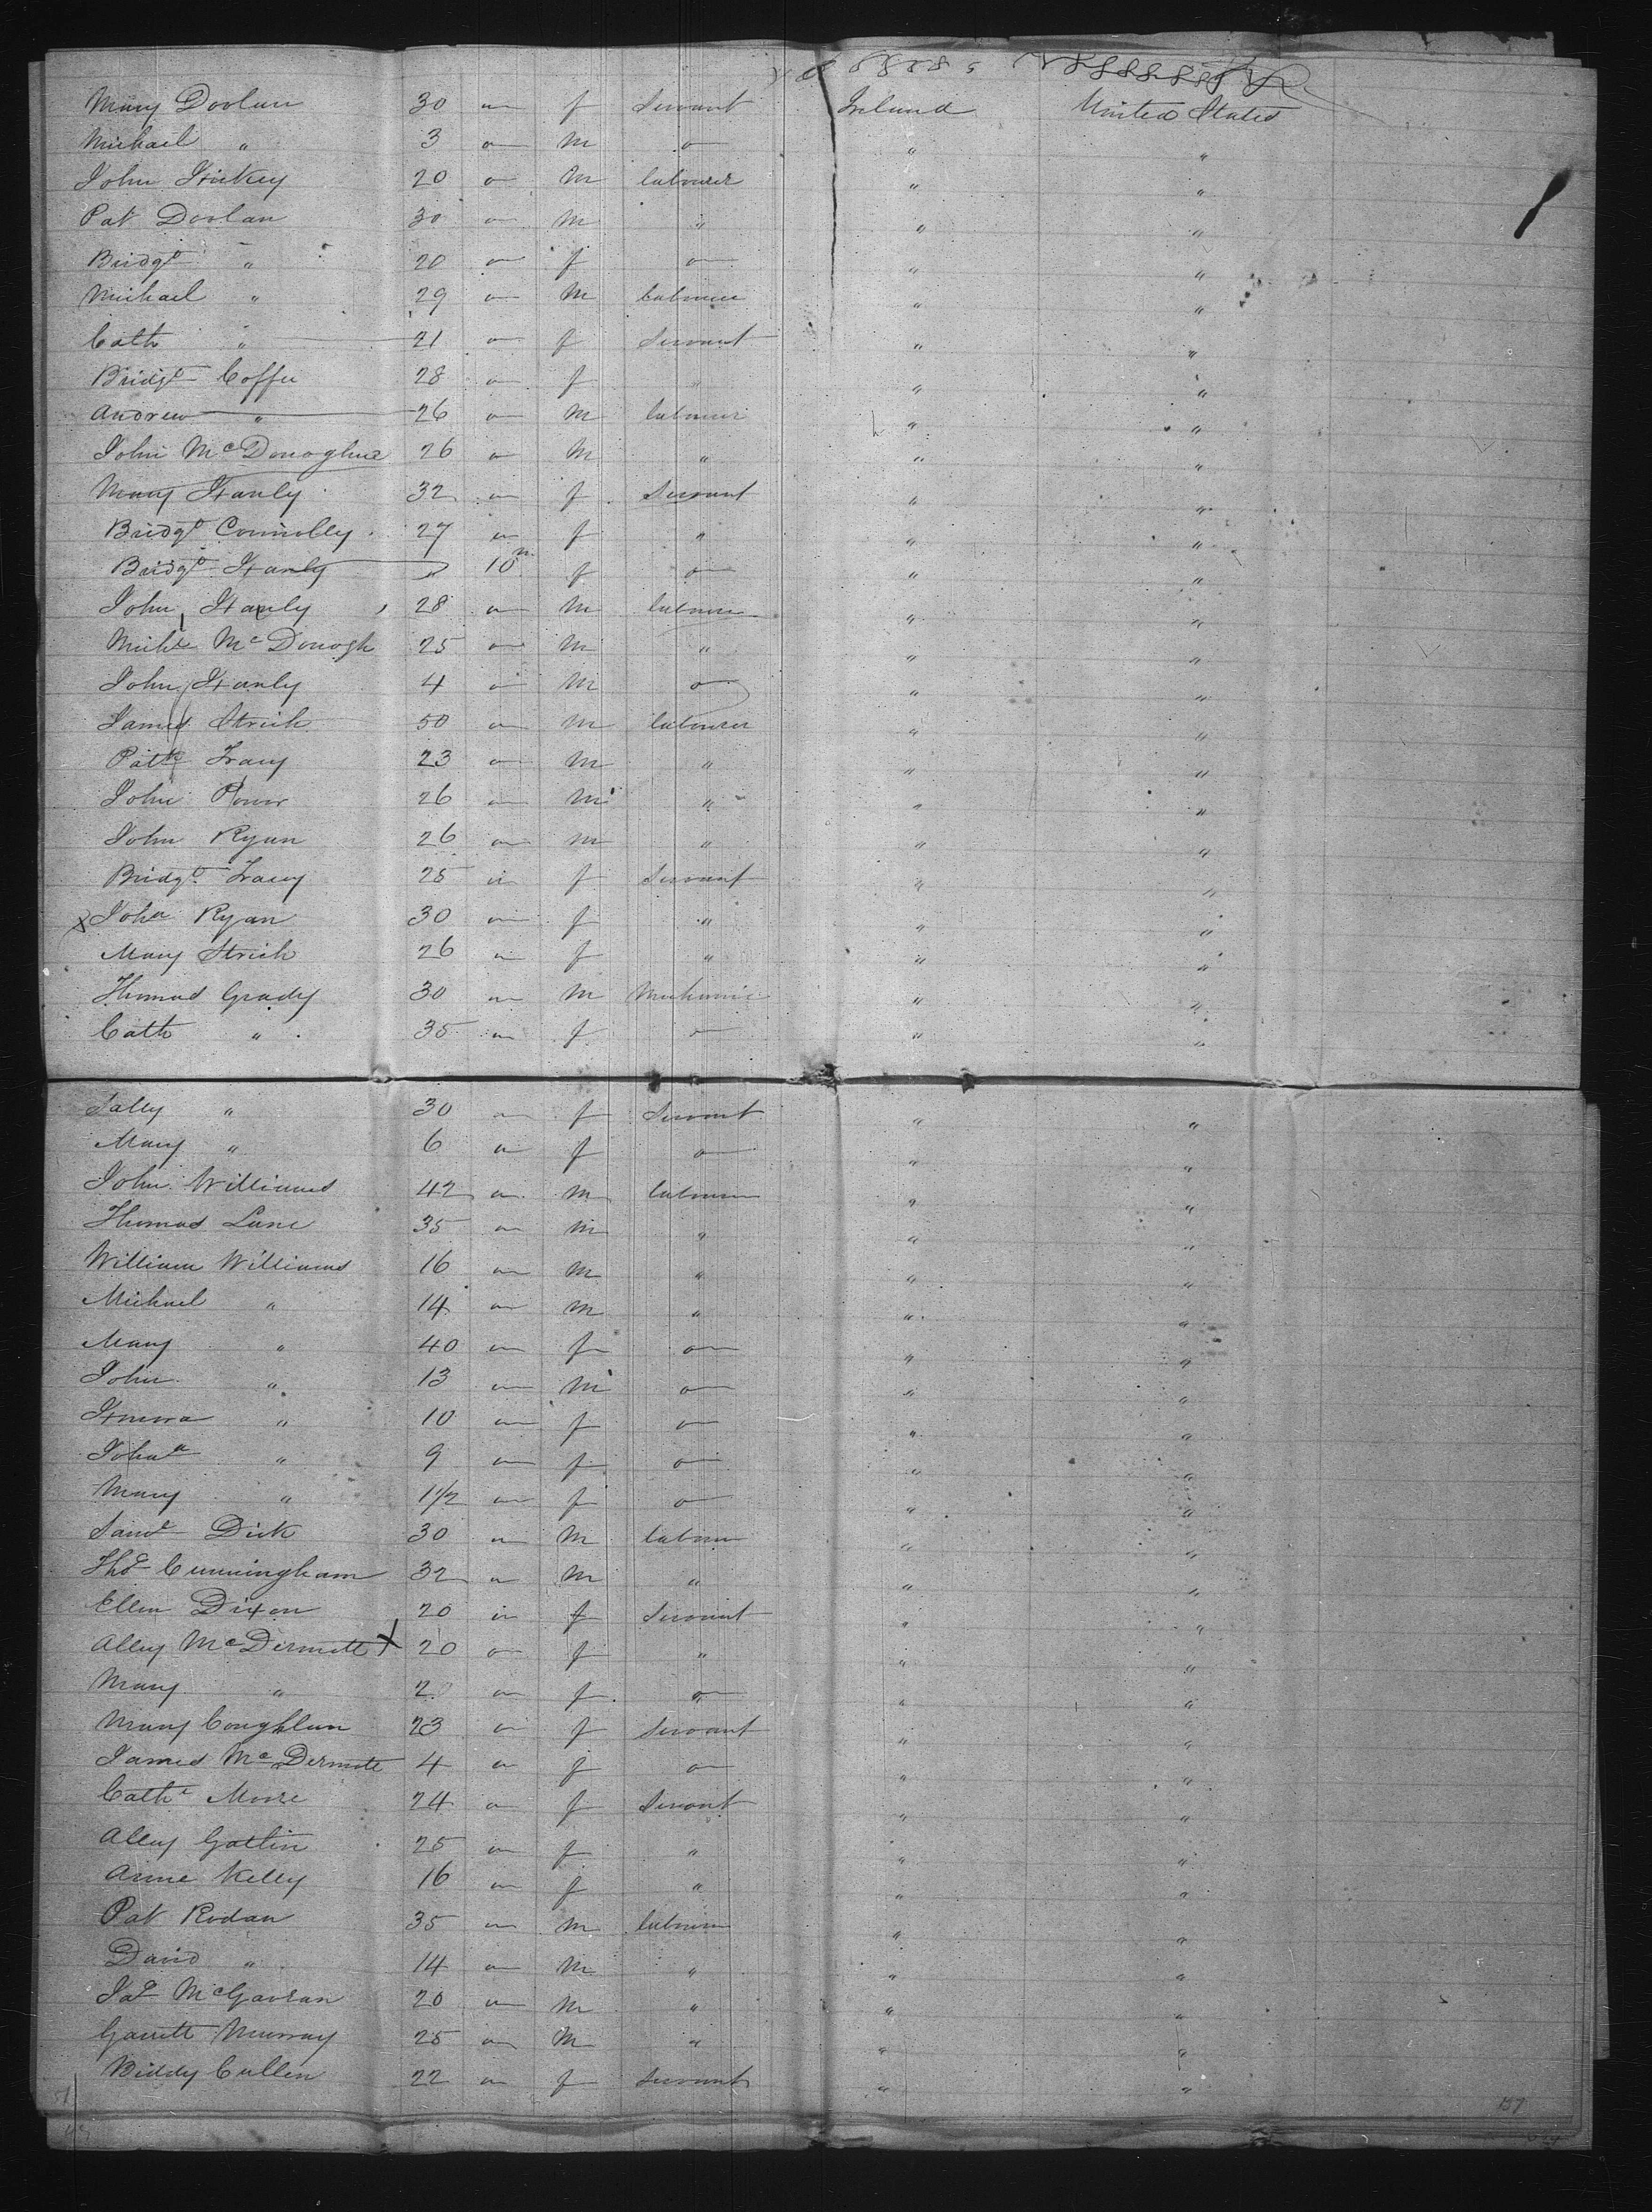 Mary Doolan 30 f Servant Ireland United States
Michael " 3 m " "
John Hickey 20 m labourer " "
Pat Doolan 30 m " " "
Bridgt " 20 f " "
Michael " 29 m labourer " "
Cath " 21 f Servant " "
Bridgt Coffee 28 f " " "
Andrew " 26 m labourer " "
John McDonoghue 26 m " " "
Mary Hanly 32 f Servant " "
Bridgt Connolly 27 f " " "
Bridgt Hanly " 10m f " "
John Hanly 28 m labourer " "
Michl McDonogh 25 m " " "
John Hanly 4 m " "
James Strich 50 m labourer " "
Patk Tracy 23 m " " "
John Power 26 m " " "
John Ryan 26 m " " "
Bridgt Tracy 25 f Servant " "
x Joha Ryan 30 f " " "
Mary Strich 26 f " " "
Thomas Grady 30 m Mechanic " "
Cath " 35 f " "
Sally " 30 f Servant " "
Mary " 6 f " "
John Williams 42 m labourer " "
Thomas Lane 35 m " " "
William Williams 16 m " " "
Michael " 14 m " " "
Mary " 40 f " "
John " 13 m " "
" 10 f " "
Joha " 9 f " "
Mary " 1 1/2 f " "
Saml Dick 30 m labourer " "
Thos Cunningham 32 m " " "
Ellen Dixon 20 f Servant " "
Alley McDermott x 20 f " " "
Mary " 2 f " "
Mary Coughlan 23 f Servant " "
James McDermott 4 f " "
Cathe Moore 24 f Servant " "
Alley 25 f " " "
Anne Kelly 16 f " " "
Pat Rodan 35 m labourer " "
David " 14 m " " "
Jas McGavran 20 m " " "
Garrett Murray 25 m " " "
Biddy Cullen 22 f Servant " "
157